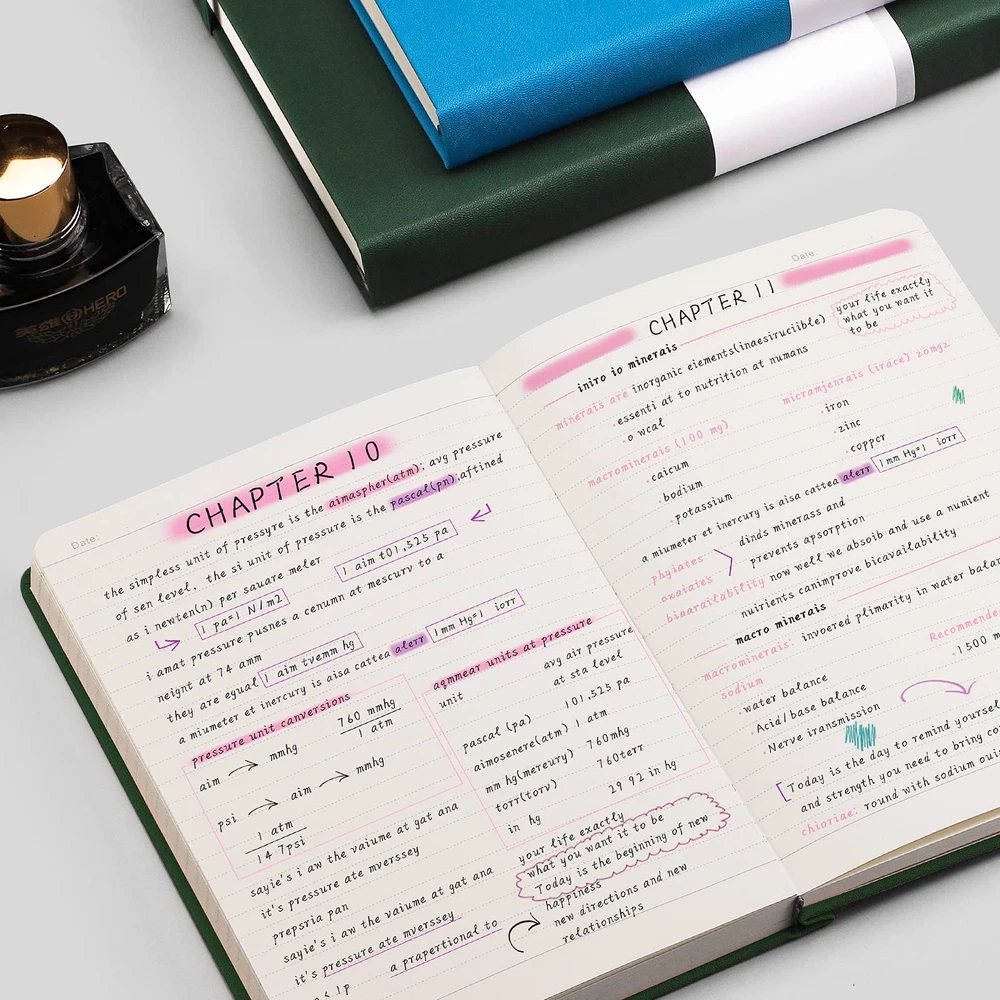 英雄 HERO
Date:
CHAPTER 10
the simpless unit of pressyre is the aimaspher(atm): avg pressure
of sen level, the si unit of pressure is the pascal(pn).aftined
as i newten(n) per sauare meler
1 aim t01,525 pa
1 pa=1 N/m2
i amat pressure pusnes a cenumn at mescury to a
neignt at 74 amm
they are equal 1 aim tvemm hg
a miumeter et inercury is aisa cattea alerr 1mm Hg=1 iorr
pressure unit canversions
aim mmhg
760 mmhg
1 atm
psi aim mmhg
1 atm
14 7psi
aqmmear units at pressure
unit
avg air pressure
at sta level
pascal (pa) 101,525 pa
aimosenere(atm) 1 atm
mm hg(mereury) 760mhg
torr(torv) 760terr
in hg 29 92 in hg
sayie's i aw the vaiume at gat ana
it's pressure ate mverssey
prepsria pan
sayie's i aw the vaiume at gat ana
it's pressure ate mverssey
a prapertional to
your life exactly
what you want it to be
Today is the beginning of new
happiness
new directions and new
relationships
Date:
CHAPTER 11
your life exactly
what you want it
to be
iniro io minerais
minerais are inorganic eiements(inaesiruciible)
·essenti at to nutrition at numans
·o wcal
macrominerais (100 mg)
·caicum
·bodium
·potassium
micramjenrais (irace) zomgz
·iron
·zinc
·coppcr
a miumeter et inercury is aisa cattea alerr 1mm Hg=1 iorr
phyiates
oxaiaies
dinds minerass and
prevents apsorption
biaarailability now well we absoib and use a numient
nuirients canimprove bicavailability
macro minerais
macrominerais: invoered plimarity in water balan
sodium
Recommende
·1500 m
·water balance
·Acid/base balance
·Nerve iransmission
Today is the day to remind yourself
and strength you need to bring co
chioriae. round with sodium ouis